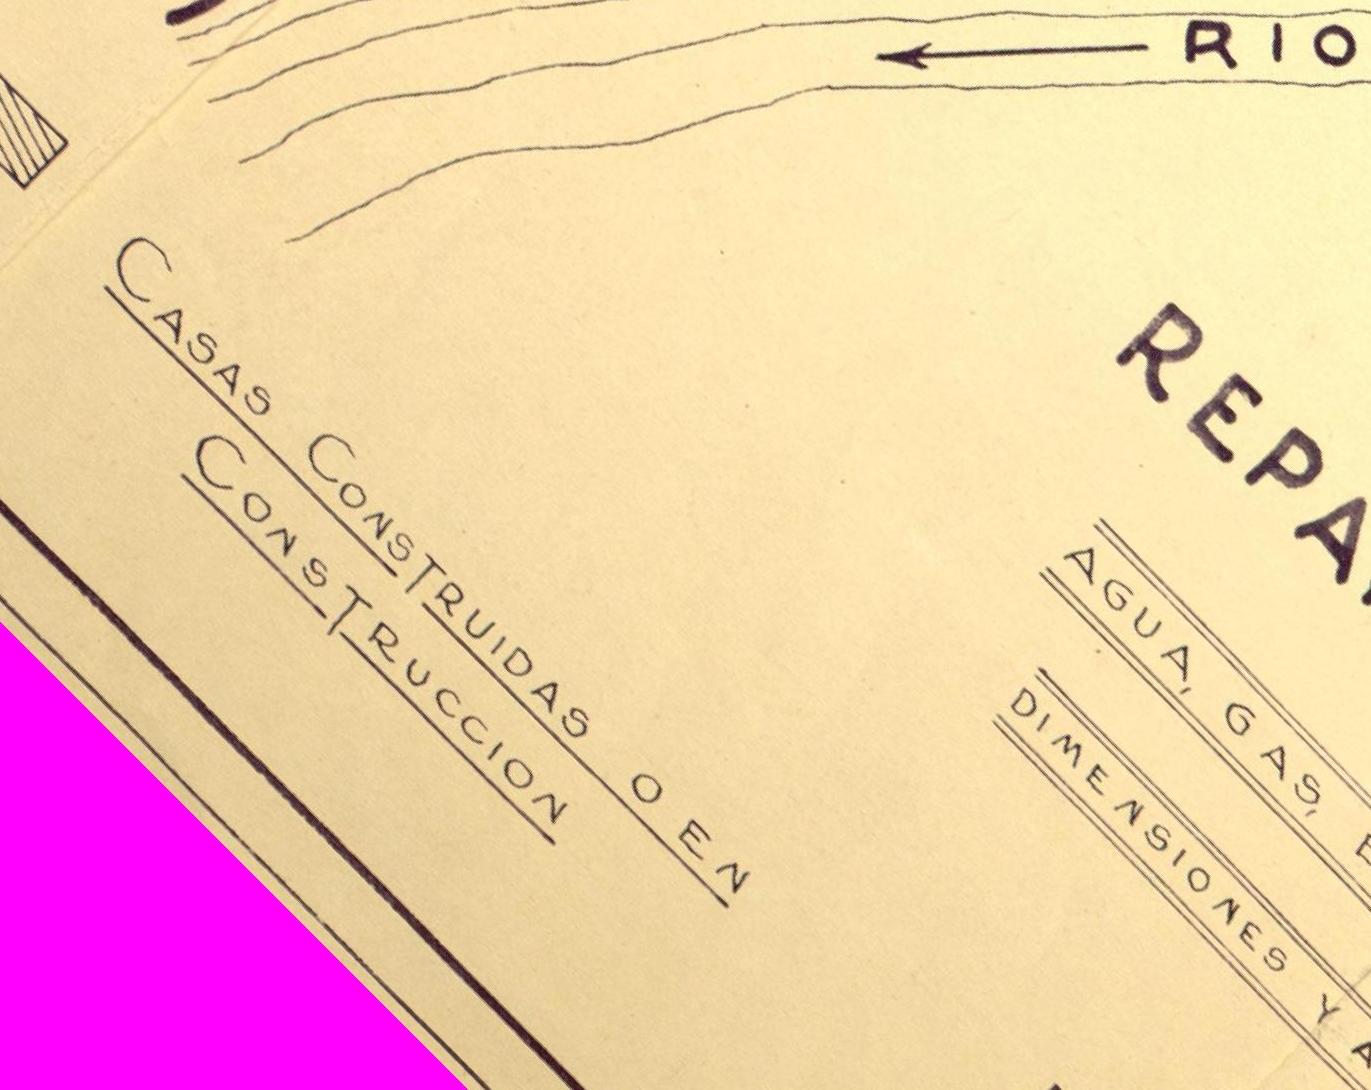 RIO
CASAS CONSTRUIDAS O EN
CONSTRUCCION
REPA
AGUA, GAS,
DIMENSIONES Y